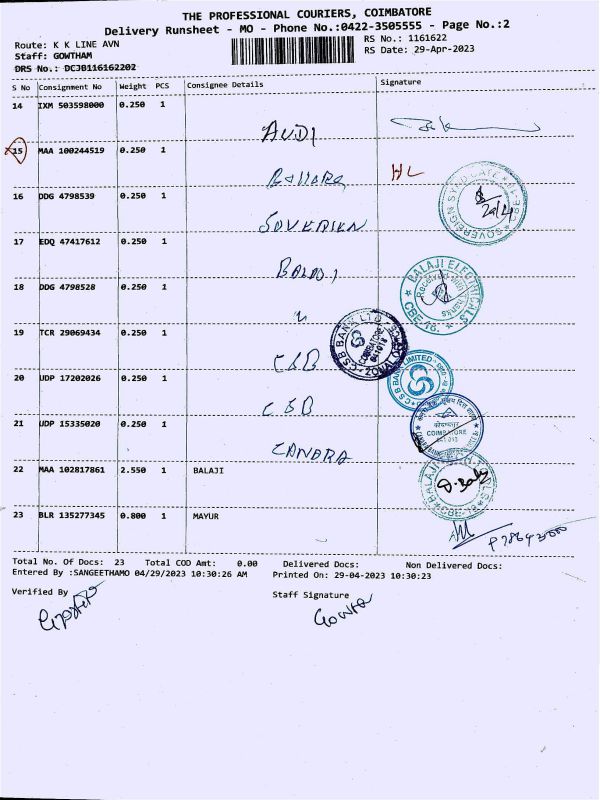 THE PROFESSIONAL COURIERS, COIMBATORE
Delivery Runsheet - MO - Phone No.:0422-3505555 - Page No.:2
Route: K K LINE AVN
RS No.: 1161622
Staff: GOWTHAM
RS Date: 29-Apr-2023
DRS No.: DCJB116162202
S No Consignment No Weight PCS Consignee Details Signature
14 IXM 503598000 0.250 1
AUDI
15 MAA 100244519 0.250 1
HL
16 DDG 4798539 0.250 1
SOVEREIGN SYNDICATE
29/4
17 EDQ 47417612 0.250 1
BALAJI
BALAJI ELECTRICALS
Received with thanks
18 DDG 4798528 0.250 1
CSB BANK LTD
COIMBATORE
19 TCR 29069434 0.250 1
CSB
CSB BANK LIMITED
20 UDP 17202026 0.250 1
CSB
COIMBATORE
21 UDP 15335020 0.250 1
CANARA
22 MAA 102817861 2.550 1 BALAJI
23 BLR 135277345 0.800 1 MAYUR
Total No. Of Docs: 23 Total COD Amt: 0.00 Delivered Docs: Non Delivered Docs:
Entered By :SANGEETHAMO 04/29/2023 10:30:26 AM Printed On: 29-04-2023 10:30:23
Verified By Staff Signature